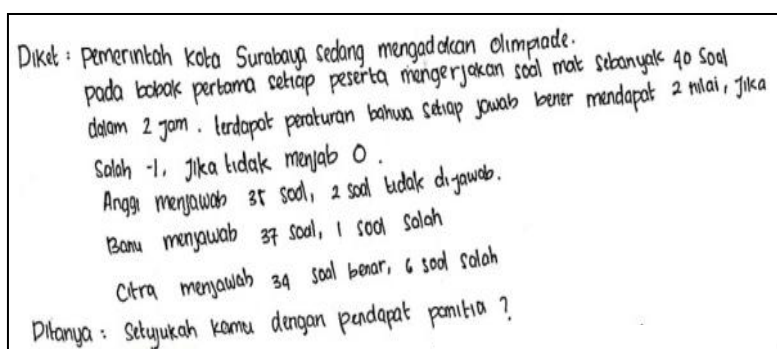 Diket : Pemerintah kota Surabaya sedang mengadakan olimpiade.
pada babak pertama setiap peserta mengerjakan soal mat sebanyak 40 soal
dalam 2 jam. terdapat peraturan bahwa setiap jawab bener mendapat 2 nilai, jika
Salah -1, jika tidak menjab 0.
Anggi menjawab 35 soal, 2 soal tidak di-jawab.
Banu menjawab 37 soal, 1 soal salah
Citra menjawab 34 soal benar, 6 soal salah
Ditanya : Setujukah kamu dengan pendapat panitia ?